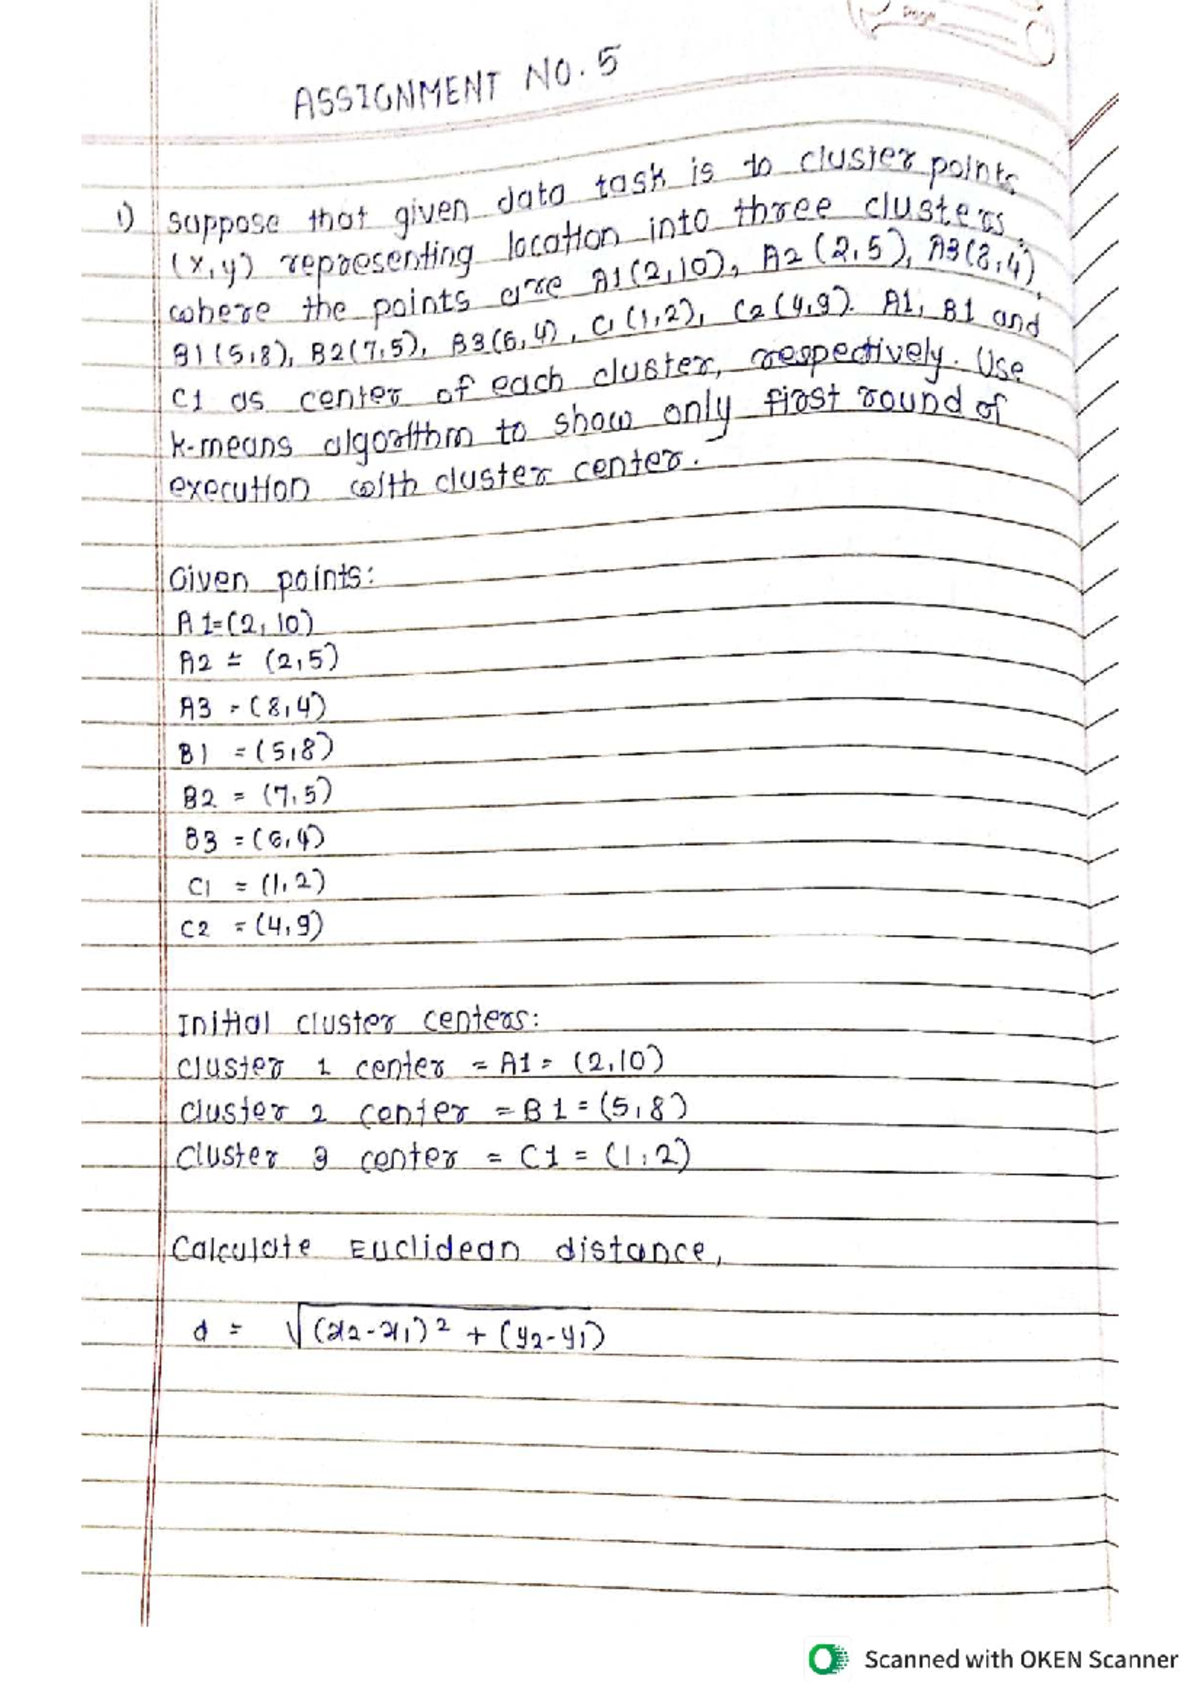 Page
ASSIGNMENT NO. 5
1) Suppose that given data task is to cluster points
(x,y) representing location into three clusters,
where the points are A1(2,10), A2(2,5), A3(8,4),
B1(5,8), B2(7,5), B3(6,4), C1(1,2), C2(4,9). A1, B1 and
C1 as center of each cluster, respectively. Use
k-means algorithm to show only first round of
execution with cluster center.
Given points:
A1=(2,10)
A2 = (2,5)
A3 = (8,4)
B1 = (5,8)
B2 = (7,5)
B3 = (6,4)
C1 = (1,2)
C2 = (4,9)
Initial cluster centers:
cluster 1 center = A1 = (2,10)
cluster 2 center = B1 = (5,8)
cluster 3 center = C1 = (1,2)
Calculate Euclidean distance,
d = √(x2-x1)² + (y2-y1)
Scanned with OKEN Scanner